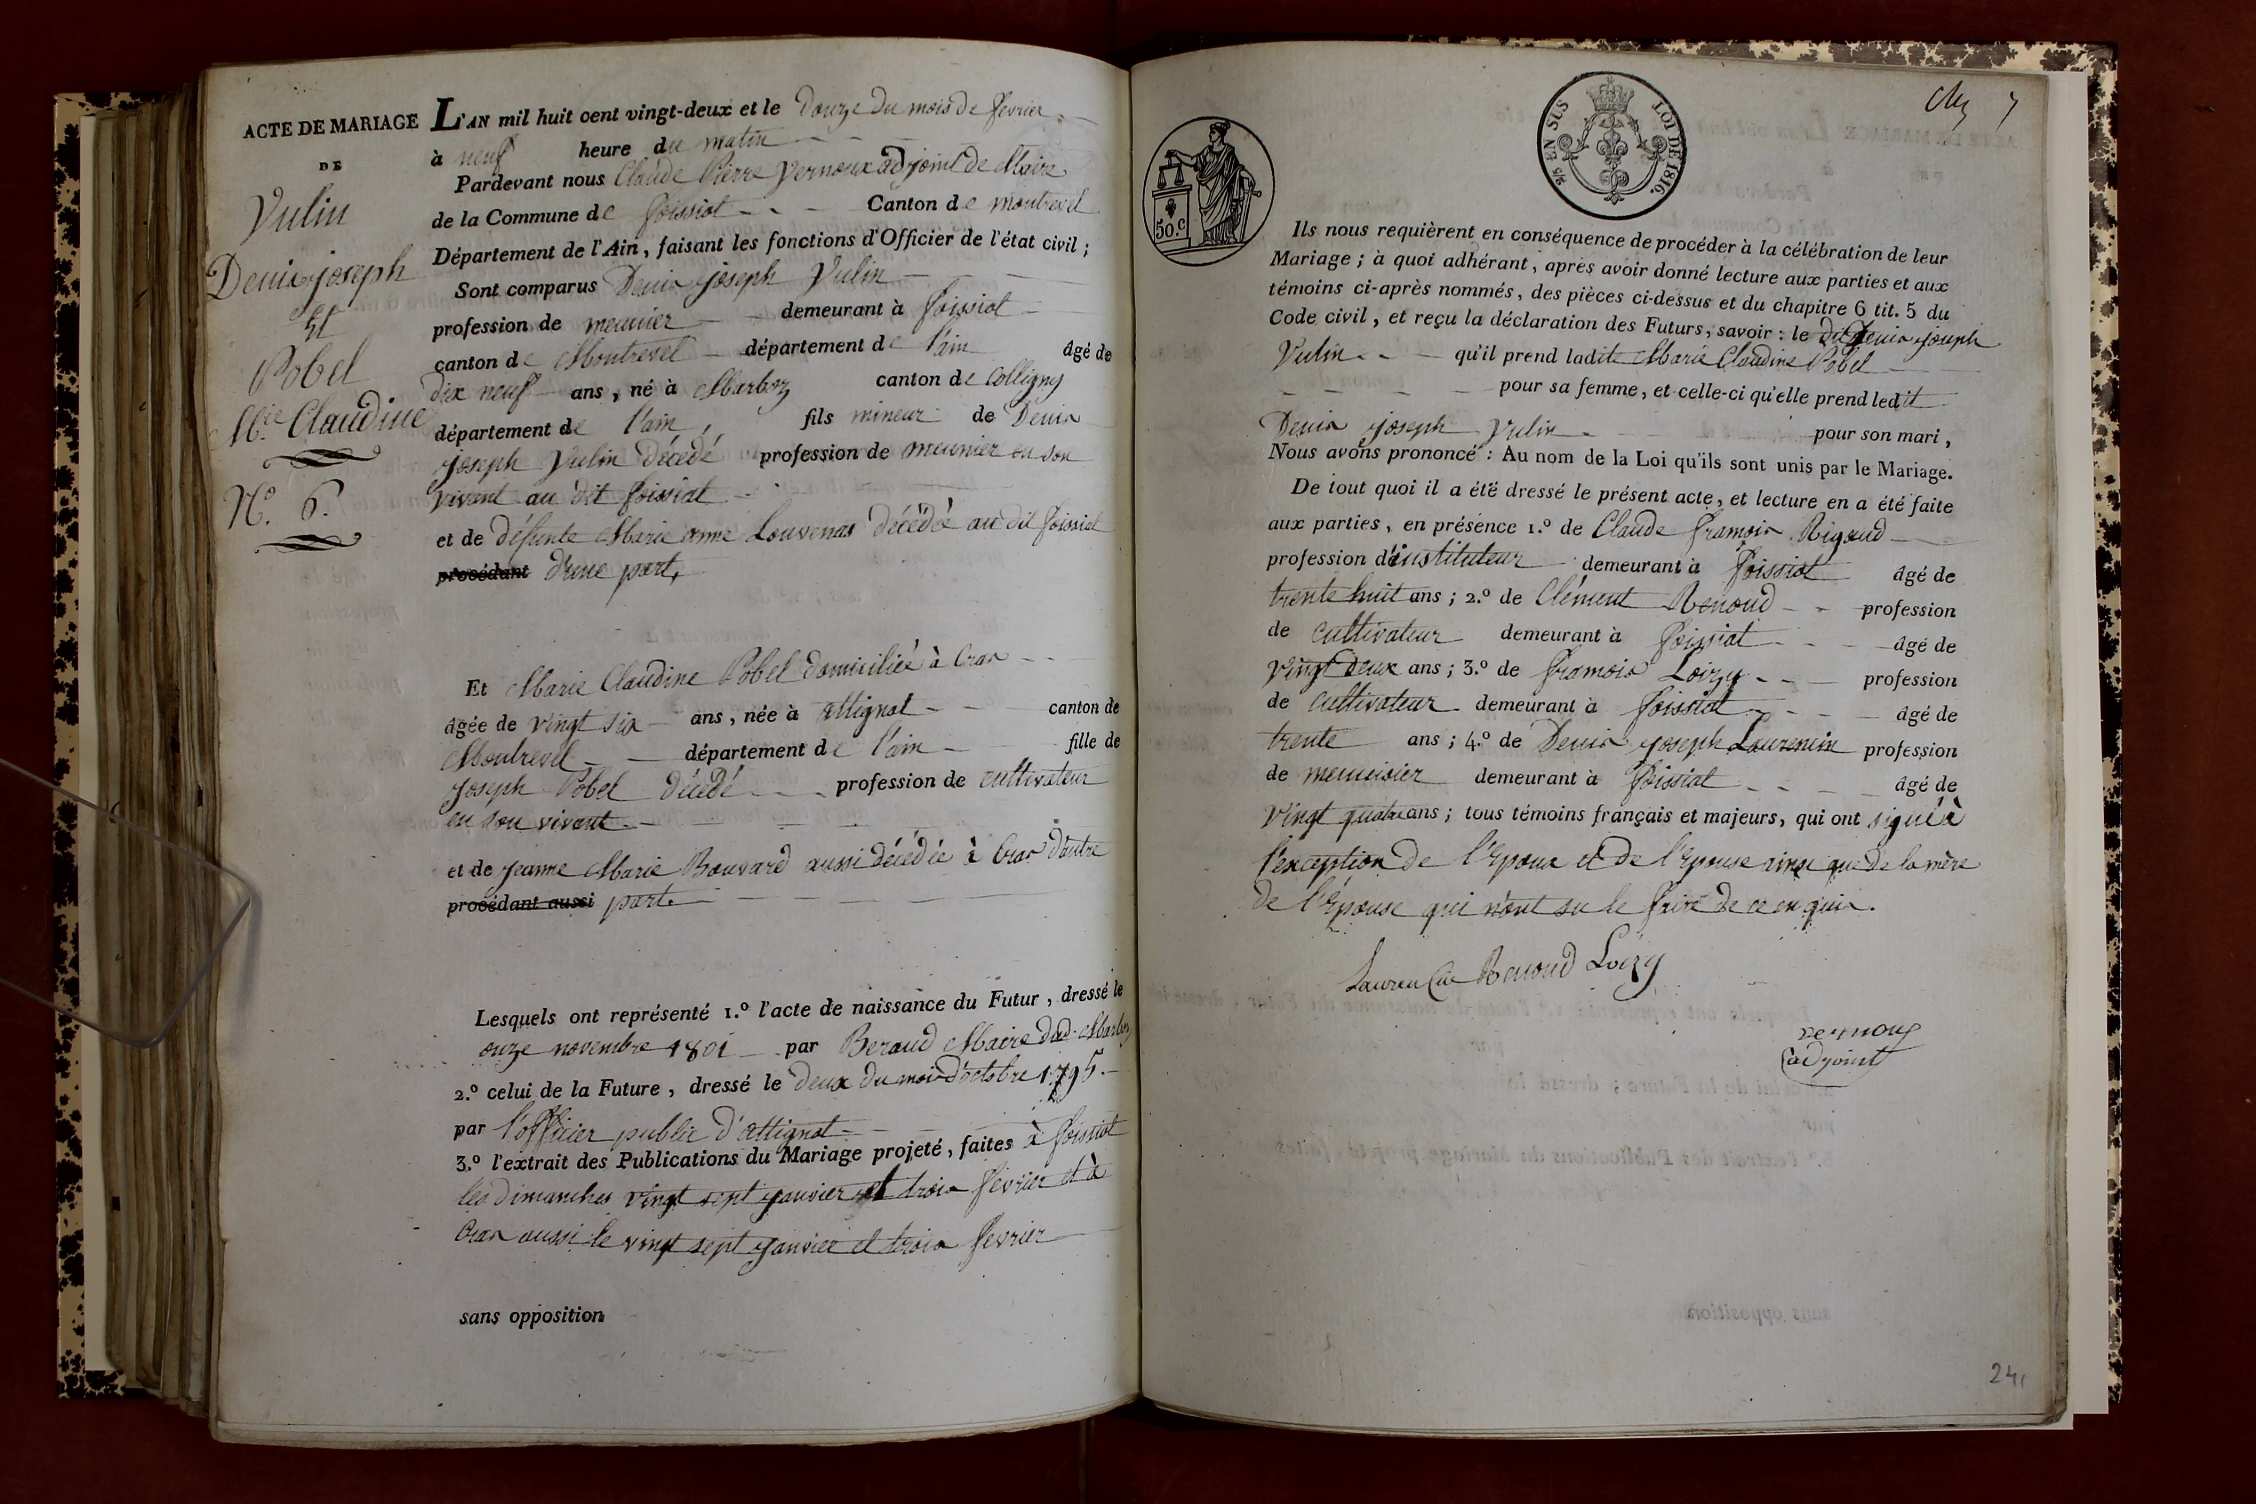 ACTE DE MARIAGE
DE
Vulin
Denis joseph
Et
Pobel
M.ie Claudine
N.o 6.
L'AN mil huit cent vingt-deux et le douze du mois de fevrier
à neuf heure du matin
Pardevant nous Claude Pierre Vernoux adjoint de Maire
de la Commune de foissiat Canton de montrevel
Département de l'Ain, faisant les fonctions d'Officier de l'état civil;
Sont comparus Denis joseph Vulin
profession de meunier demeurant à foissiat
canton de Montrevel département de l'ain âgé de
dix neuf ans, né à Marboz canton de Colligny
département de l'ain, fils mineur de Denis
joseph Vulin décédé profession de meunier en son
vivant au dit foissiat
et de défunte Marie anne Louvenas décédée au dit foissiat
procédant d'une part,
Et Marie Claudine Pobel domiciliée à Cras
âgée de vingt six ans, née à attignat canton de
Montrevel département de l'ain fille de
joseph Pobel décédé profession de cultivateur
en son vivant
et de jeanne Marie Bouvard aussi décédée à Cras d'autre
procédant aussi part.
Lesquels ont représenté 1.o l'acte de naissance du Futur, dressé le
onze novembre 1801 par Beraud Maire dud. Marboz
2.o celui de la Future, dressé le deux du mois d'octobre 1795.
par l'officier public d'attignat
3.o l'extrait des Publications du Mariage projeté, faites à foissiat
les dimanches vingt sept janvier et trois fevrier et à
Cras aussi le vingt sept janvier et trois fevrier
sans opposition
7
5/5 EN SUS LOI DE 1816.
50.c
Ils nous requièrent en conséquence de procéder à la célébration de leur
Mariage; à quoi adhérant, après avoir donné lecture aux parties et aux
témoins ci-après nommés, des pièces ci-dessus et du chapitre 6 tit. 5 du
Code civil, et reçu la déclaration des Futurs, savoir: le dit Denis joseph
Vulin qu'il prend ladite Marie Claudine Pobel
pour sa femme, et celle-ci qu'elle prend ledit
Denis joseph Vulin pour son mari,
Nous avons prononcé: Au nom de la Loi qu'ils sont unis par le Mariage.
De tout quoi il a été dressé le présent acte, et lecture en a été faite
aux parties, en présence 1.o de Claude françois Rigaud
profession d'instituteur demeurant à foissiat âgé de
trente huit ans; 2.o de Clément Renoud profession
de cultivateur demeurant à foissiat âgé de
vingt deux ans; 3.o de françois Loizy profession
de cultivateur demeurant à foissiat âgé de
trente ans; 4.o de Denis joseph Laurencin profession
de menuisier demeurant à foissiat âgé de
vingt quatre ans; tous témoins français et majeurs, qui ont signé à
l'exception de l'Epoux et de l'Epouse ainsi que de la mère
de l'Epouse qui n'ont su le faire de ce enquis.
Laurencin Renoud Loizy
vernoux
adjoint
24